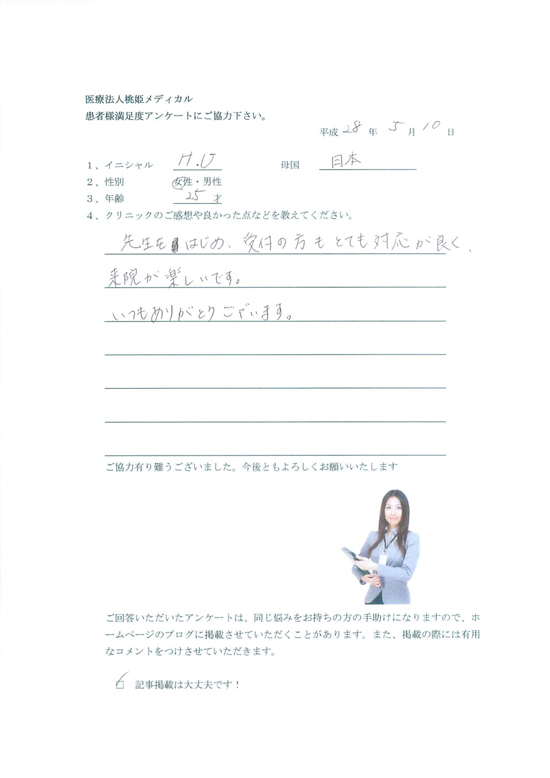 医療法人桃姫メディカル
患者様満足度アンケートにご協力下さい。
平成 28 年 5 月 10 日
1、イニシャル H.U 母国 日本
2、性別 女性・男性
3、年齢 25 才
4、クリニックのご感想や良かった点などを教えてください。
先生をはじめ、受付の方もとても対応が良く、
来院が楽しいです。
いつもありがとうございます。
ご協力有り難うございました。今後ともよろしくお願いいたします
ご回答いただいたアンケートは、同じ悩みをお持ちの方の手助けになりますので、ホ
ームページのブログに掲載させていただくことがあります。また、掲載の際には有用
なコメントをつけさせていただきます。
記事掲載は大丈夫です！